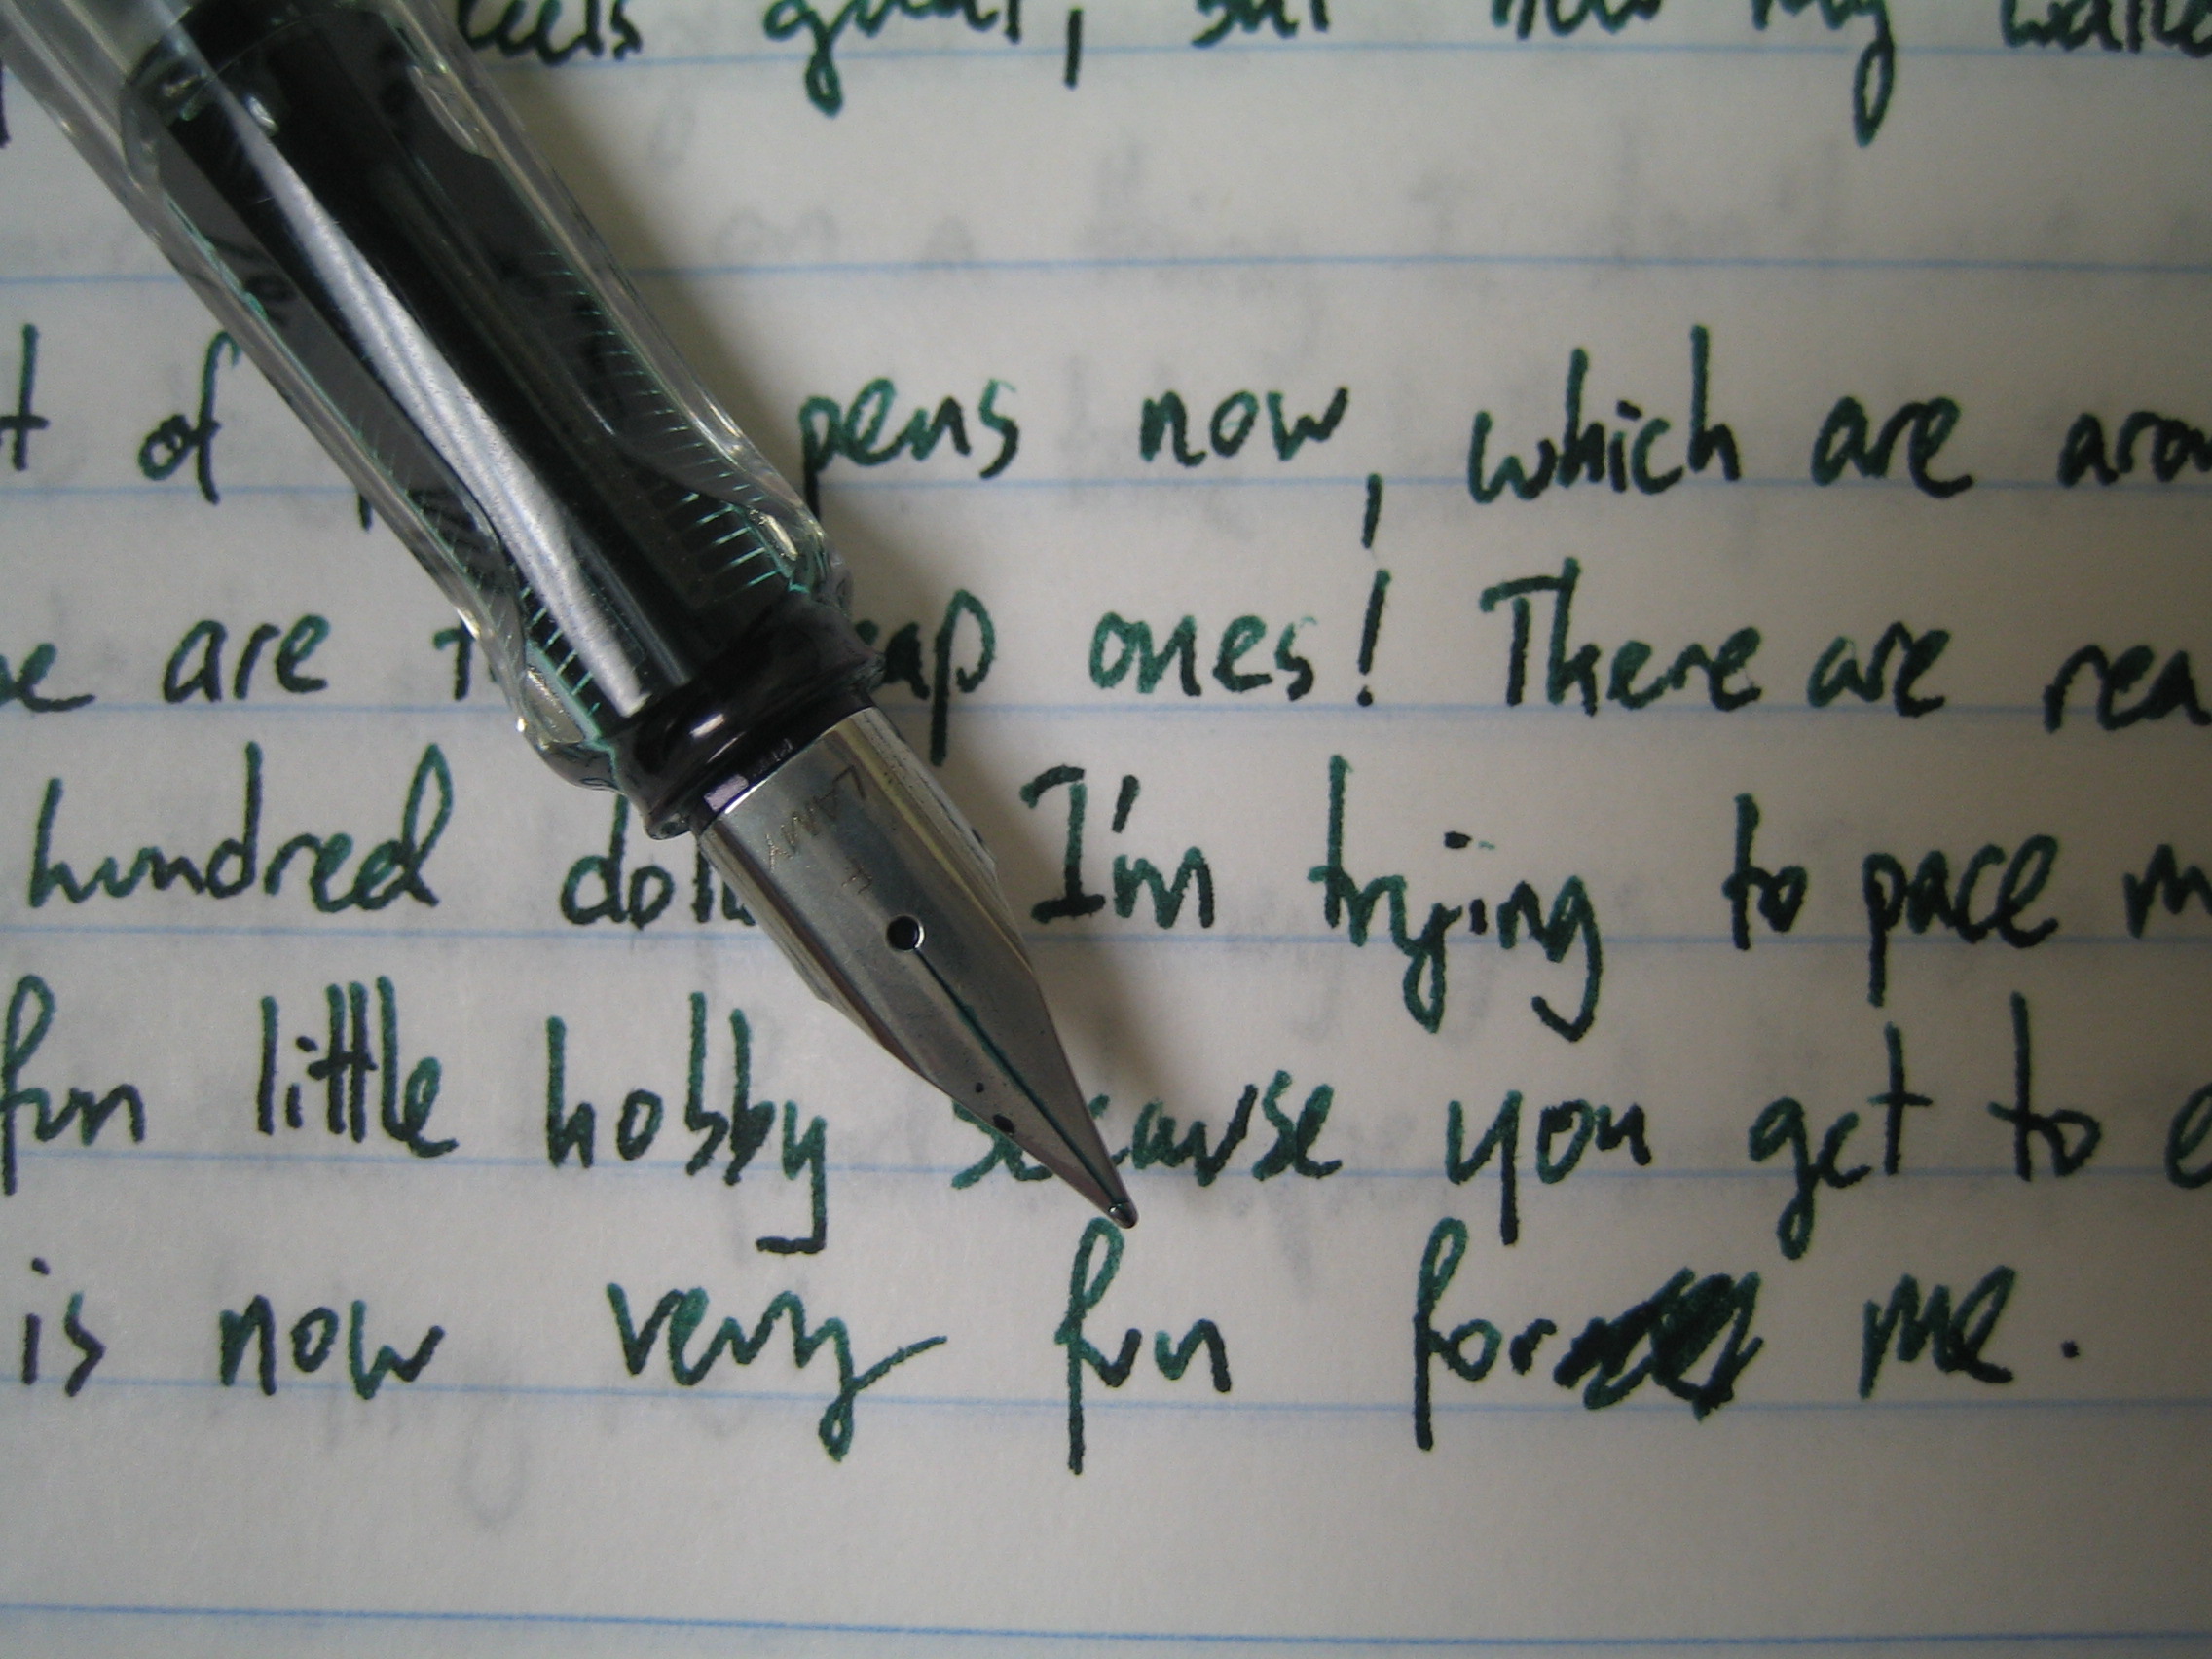 feels good, but now my
of pens now, which are
are ones! There are
hundred I'm trying to pace
fun little hobby because you get to
is now very fun for me.
LAMY
F